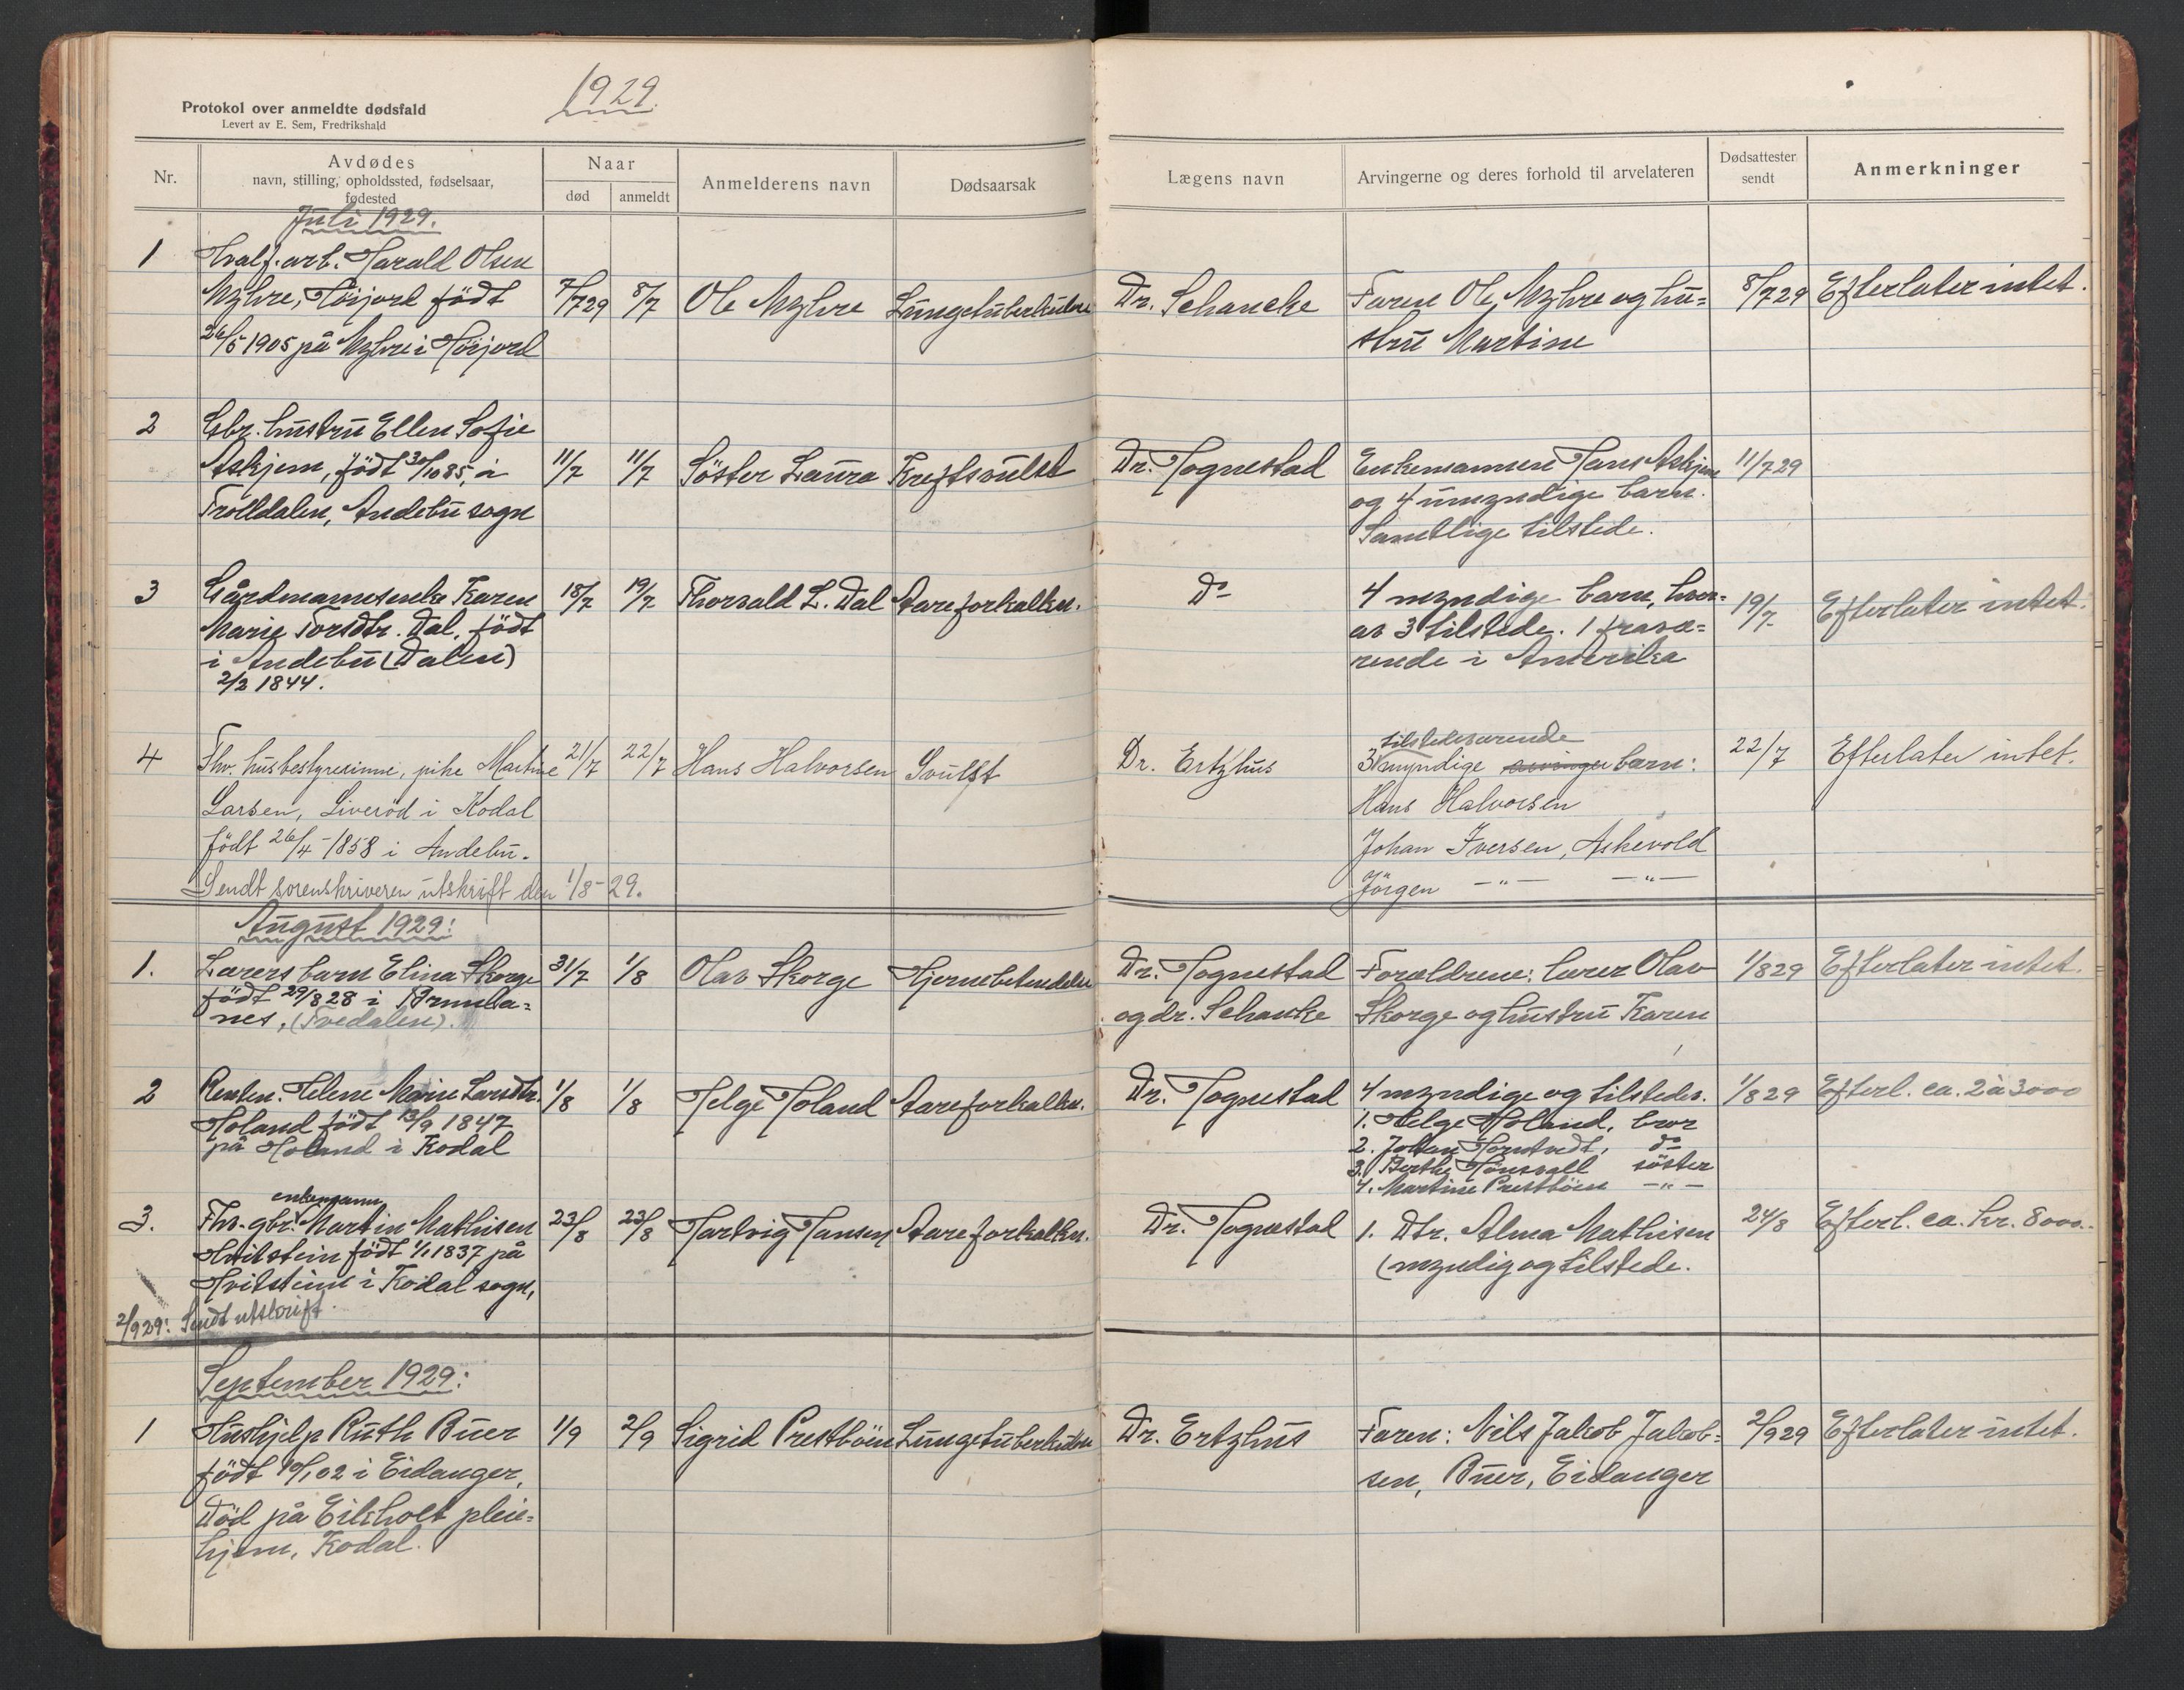 1929.
Protokol over anmeldte dødsfald
Levert av E. Sem, Fredrikshald
Nr.
Avdødes
navn, stilling, opholdssted, fødselsaar,
fødested
Naar
død
anmeldt
Anmelderens navn
Dødsaarsak
Lægens navn
Arvingerne og deres forhold til arvelateren
Dødsattester
sendt
Anmerkninger
Juli 1929.
1
Hvalf.arb. Harald Olsen
Myhre, Höijord född
26/5 1905 på Myhre i Höijord
7/7 29
8/7
Ole Myhre
Lungetuberkulose
Dr. Schancke
Faren Ole Myhre og hu=
stru Martine
8/7 29
Efterlater intet.
2
Gbr. hustru Ellen Sofie
Askjem, född 30/10 85, i
Trolldalen, Andebu sogn
11/7
11/7
Söster Laura
Kreftsvulst
Dr. Tognestad
Enkemannen Hans Askjem
og 4 umyndige barn.
Samtlige tilstede.
11/7 29
3
Gårdmannsenke Karen
Marie Torsdtr. Dal, född
i Andebu (Dalen)
2/2 1844.
18/7
19/7
Thorvald L. Dal
Aareforkalkn.
Do
4 myndige barn, hvor=
av 3 tilstede. 1 fravæ=
rende i Amerika
19/7
Efterlater intet.
4
Fhv. husbestyrerinne, pike Martine
Larsen, Liveröd i Kodal
född 26/4-1858 i Andebu.
21/7
22/7
Hans Halvorsen
Svulst
Dr. Ertzhus
tilstedeværende
3 myndige arvinger barn:
Hans Halvorsen
Johan Iversen, Askevold
Jörgen -"- -"-
22/7
Efterlater intet.
Sendt sorenskriveren utskrift den 1/8-29.
August 1929:
1.
Lærers barn Elina Skorge
född 29/8 28 i Brunla=
nes, (Tvedalen).
31/7
1/8
Olav Skorge
Hjernebetendelse
Dr. Tognestad
og dr. Schancke
Forældrene: lærer Olav
Skorge og hustru Karen
1/8 29
Efterlater intet.
2
Renten. Helene Marie Larsdtr.
Holand född 13/9 1847
på Holand i Kodal
1/8
1/8
Helge Holand
Aareforkalkn.
Dr. Tognestad
4 myndige og tilstedev.
1. Helge Holand, bror
2. Johan Hornt­vedt, do
3. Berthe söster
4. Martine Prestböen -"-
1/8 29
Efterl. ca. 2 à 3000
3.
enkemann
Fhv. gbr. Martin Mathisen
Hvitstein född 1/1 1837 på
Hvitstein i Kodal sogn,
23/8
23/8
Hartvig Hansen
Aareforkalkn.
Dr. Tognestad
1. Dtr. Alma Mathisen
(myndig og tilstede.
24/8
Efterl. ca. kr. 8000.-
2/9 29: Sendt utskrift.
September 1929:
1
Hushjelp Ruth Buer
född 10/1 02 i Eidanger,
Död på Eikholt pleie=
hjem, Kodal.
1/9
2/9
Sigrid Prestböen
Lungetuberkulose
Dr. Ertzhus
Faren: Nils Jakob Jakob=
sen, Buer, Eidanger
2/9 29
Efterlater intet.